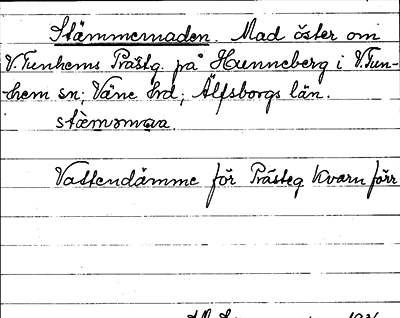 Stämmermaden. Mad öster om
V. Tunhems Prästg. på Hunneberg i V. Tun-
hem sn; Väne hrd; Älfsborgs län.
Vattendämme för Prästeg Kvarn förr